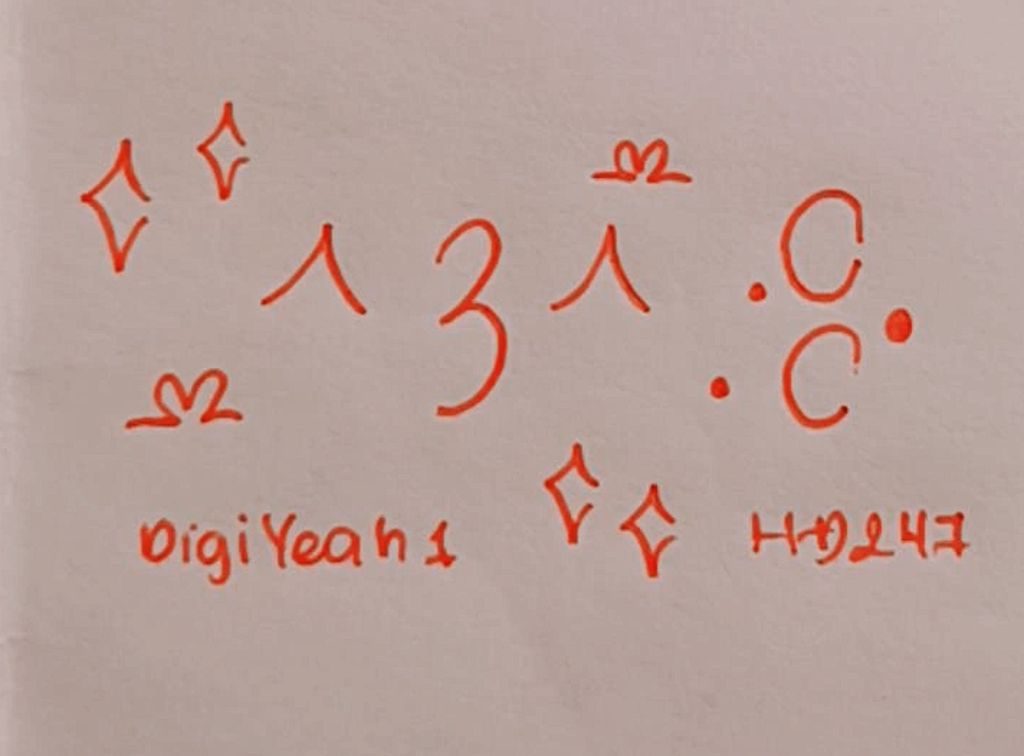 ^3^ .C
.C.
DigiYeah1 HD247